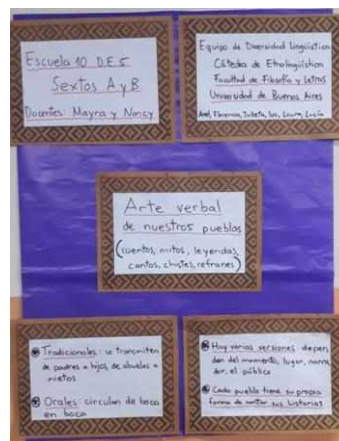 Escuela 10 D.E.5
Sextos A y B
Docentes: Mayra y Nancy
Equipo de Diversidad Lingüística
Cátedra de Etnolingüística
Facultad de Filosofía y Letras
Universidad de Buenos Aires
Florencia, Julieta, Laura, Lucía
Arte verbal
de nuestros pueblos
(cuentos, mitos, leyendas,
cantos, chistes, refranes)
Tradicionales: se transmiten
de padres a hijos, de abuelos a
nietos
Orales: circulan de boca
en boca
Hay varias versiones: depen
den del momento, lugar, narra
dor, el público
Cada pueblo tiene su propia
forma de contar sus historias